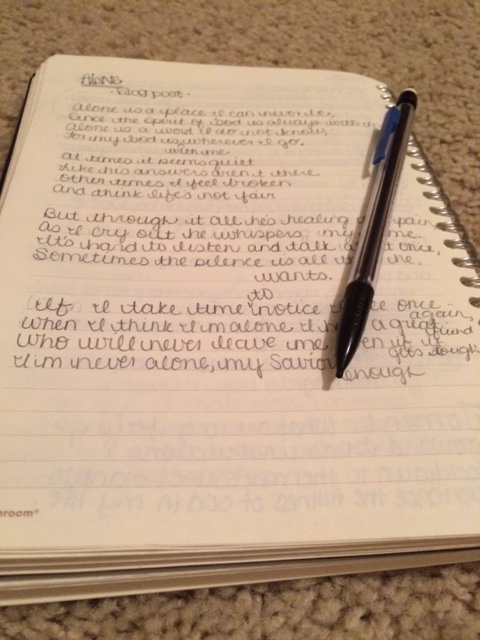 Alone
·Blog post·
Alone is a place I can never be,
Since the spirit of God is always with
Alone is a word I do not know,
for my God is, wherever I go.
with me
At times it seems quiet
like his answers aren't there
Other times I feel broken
And think life's not fair
But through it all he's healing pain
As I cry out he whispers my
It's hard to listen and talk at once,
Sometimes the silence is all he
wants.
to
If I take time notice I see once
again,
when I think I'm alone I a great
friend
Who will never leave me it
gets tough
I'm never alone, my Savior
enough
room®